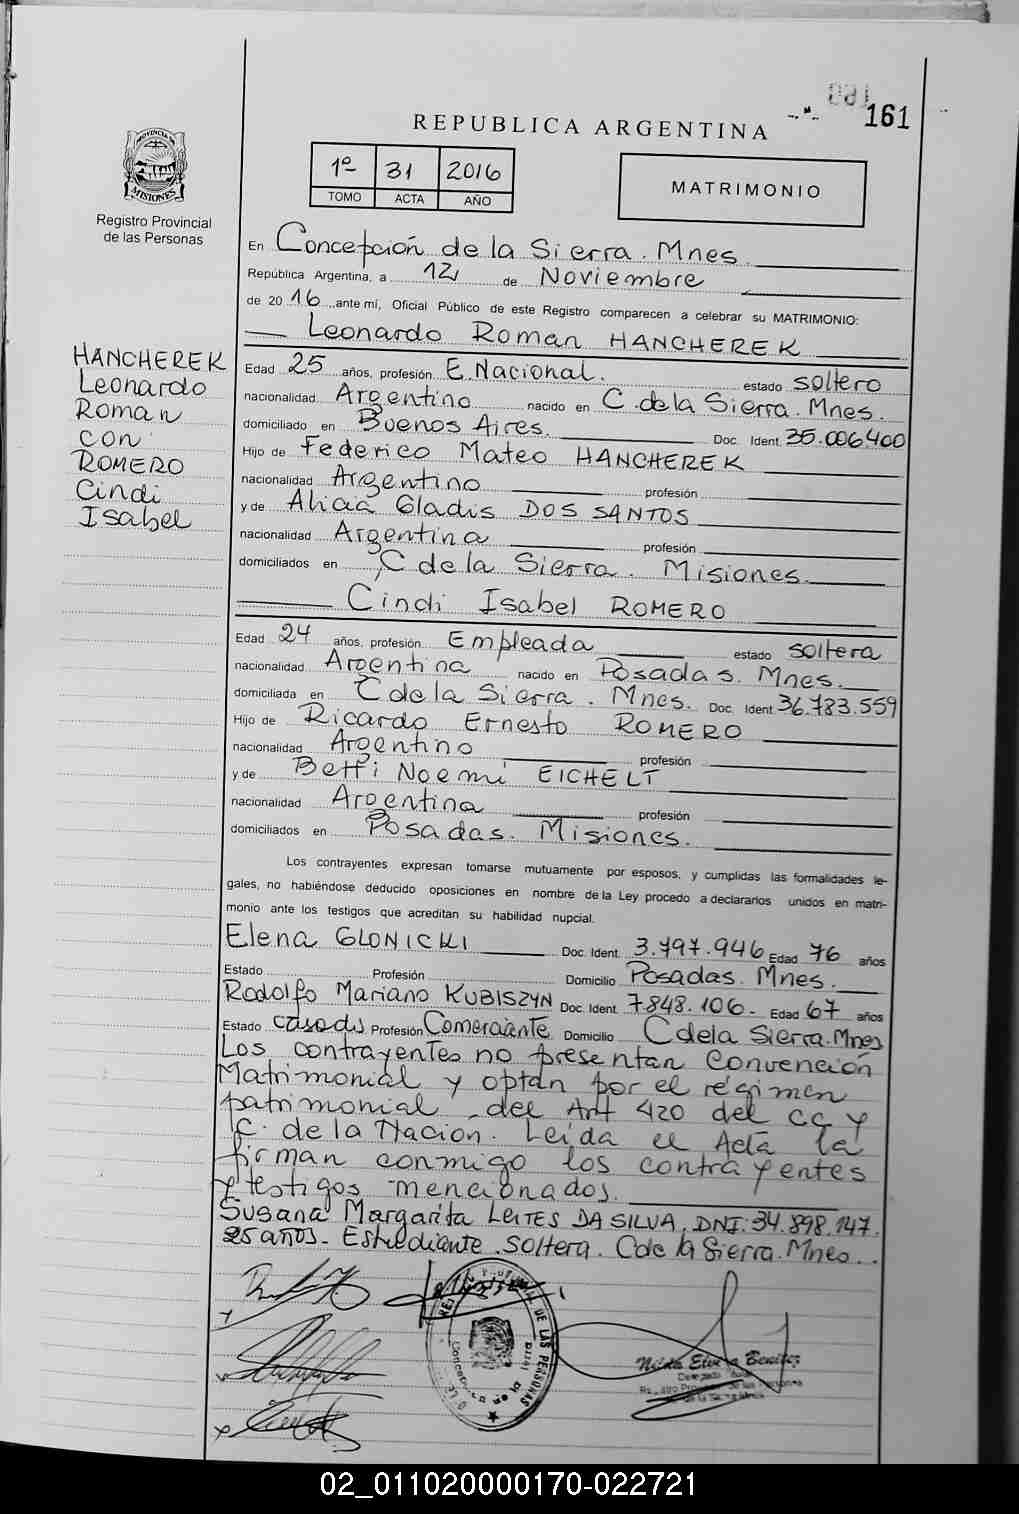 161
REPUBLICA ARGENTINA
PROVINCIA DE
MISIONES
Registro Provincial
de las Personas
1º 31 2016
TOMO ACTA AÑO
MATRIMONIO
En Concepción de la Sierra. Mnes.
República Argentina, a 12 de Noviembre
de 2016, ante mí, Oficial Público de este Registro comparecen a celebrar su MATRIMONIO:
Leonardo Roman HANCHEREK
HANCHEREK
Leonardo
Roman
con
ROMERO
Cindi
Isabel
Edad 25 años, profesión E. Nacional. estado soltero
nacionalidad Argentino nacido en C. de la Sierra. Mnes.
domiciliado en Buenos Aires. Doc. Ident. 35.006.400
Hijo de Federico Mateo HANCHEREK
nacionalidad Argentino profesión
y de Alicia Gladis DOS SANTOS
nacionalidad Argentina profesión
domiciliados en C de la Sierra. Misiones.
Cindi Isabel ROMERO
Edad 24 años, profesión Empleada estado soltera
nacionalidad Argentina nacido en Posadas. Mnes.
domiciliada en C de la Sierra. Mnes. Doc. Ident. 36.783.559
Hijo de Ricardo Ernesto ROMERO
nacionalidad Argentino profesión
y de Betti Noemi EICHELT
nacionalidad Argentina profesión
domiciliados en Posadas. Misiones.
Los contrayentes expresan tomarse mutuamente por esposos, y cumplidas las formalidades le-
gales, no habiéndose deducido oposiciones en nombre de la Ley procedo a declararlos unidos en matri-
monio ante los testigos que acreditan su habilidad nupcial.
Elena GLONICKI Doc. Ident. 3.797.946 Edad 76 años
Estado Profesión Domicilio Posadas. Mnes.
Rodolfo Mariano KUBISZYN Doc. Ident. 7848.106. Edad 67 años
Estado casado Profesión Comerciante Domicilio C de la Sierra. Mnes
Los contrayentes no presentan Convención
Matrimonial y optan por el régimen
patrimonial del Art 420 del CC y
C. de la Nacion. Leida el Acta la
firman conmigo los contrayentes
y testigos mencionados.
Susana Margarita LEITES DA SILVA. DNI: 34.898.147.
25 años. Estudiante. Soltera. C de la Sierra. Mnes.
DE LAS PERSONAS
Nilda Elvira Benitez
02_011020000170-022721